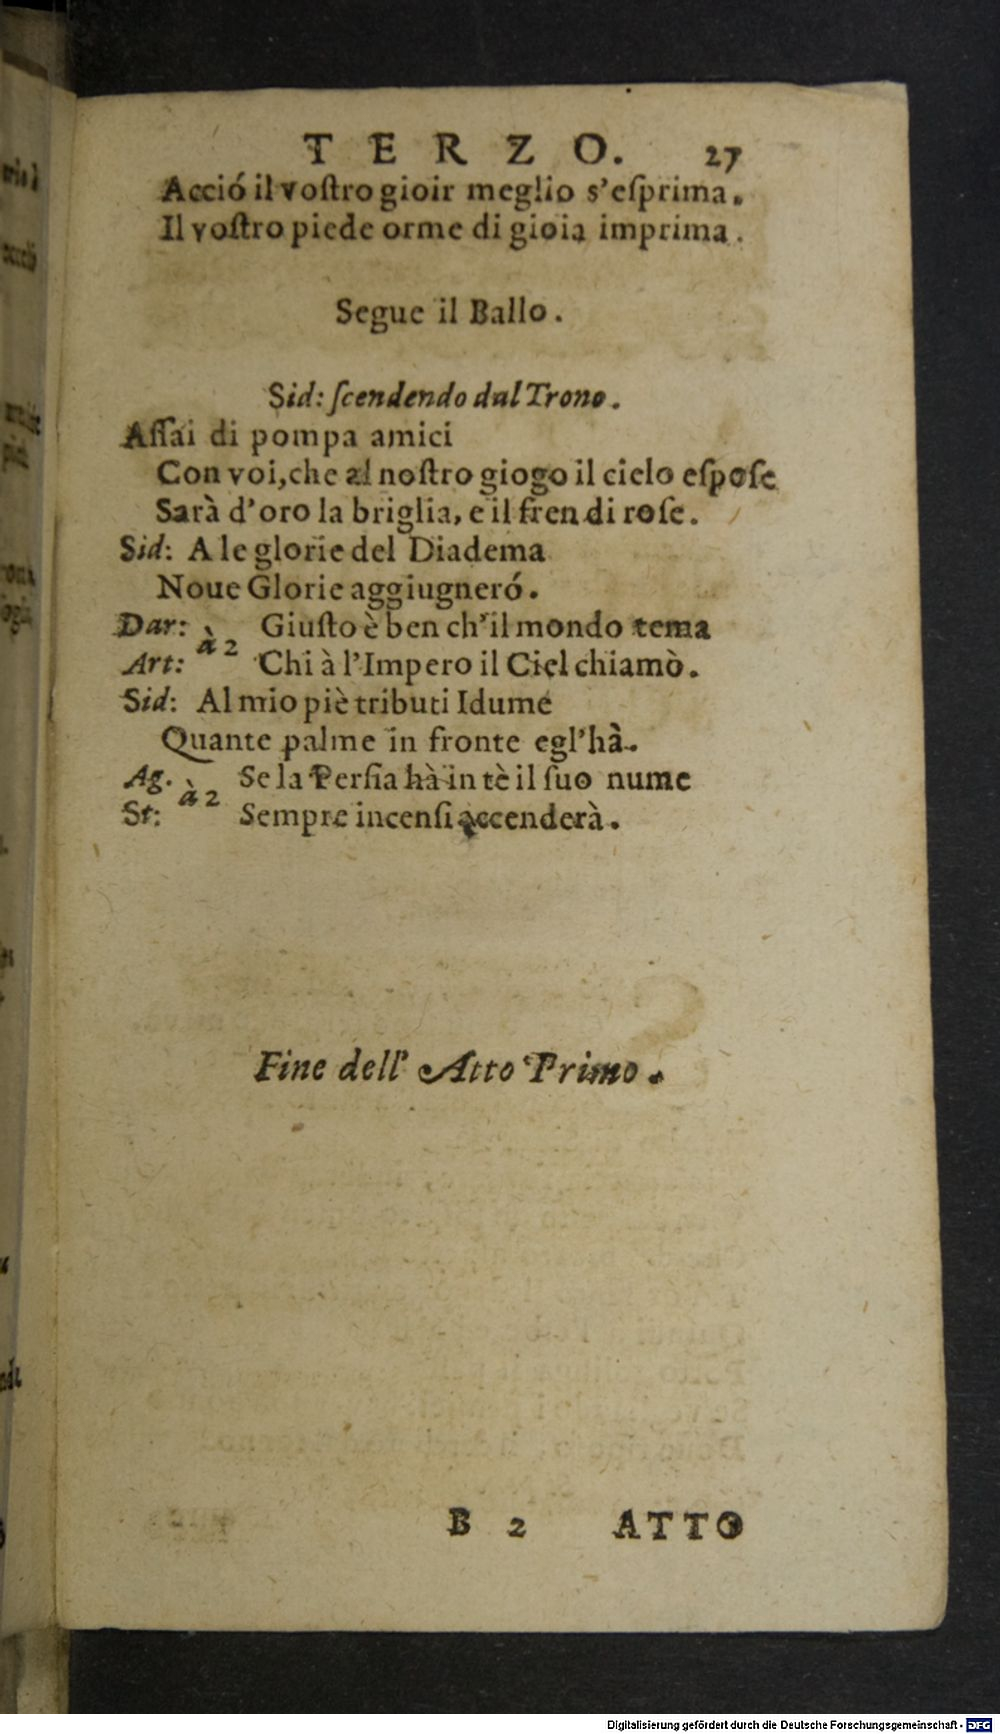 TERZO. 27
Acció il vostro gioir meglio s'esprima.
Il vostro piede orme di gioia imprima.
Segue il Ballo.
Sid: scendendo dal Trono.
Assai di pompa amici
Con voi, che al nostro giogo il cielo espose
Sarà d'oro la briglia, e il fren di rose.
Sid: A le glorie del Diadema
Noue Glorie aggiugneró.
Dar: Giusto è ben ch'il mondo tema
à 2
Art: Chi à l'Impero il Ciel chiamò.
Sid: Al mio piè tributi Idume
Quante palme in fronte egl'hà.
Ag. Se la Persia hà in tè il suo nume
à 2
St: Sempre incensi accenderà.
Fine dell' Atto Primo.
B 2 ATTO
Digitalisierung gefördert durch die Deutsche Forschungsgemeinschaft - DFG